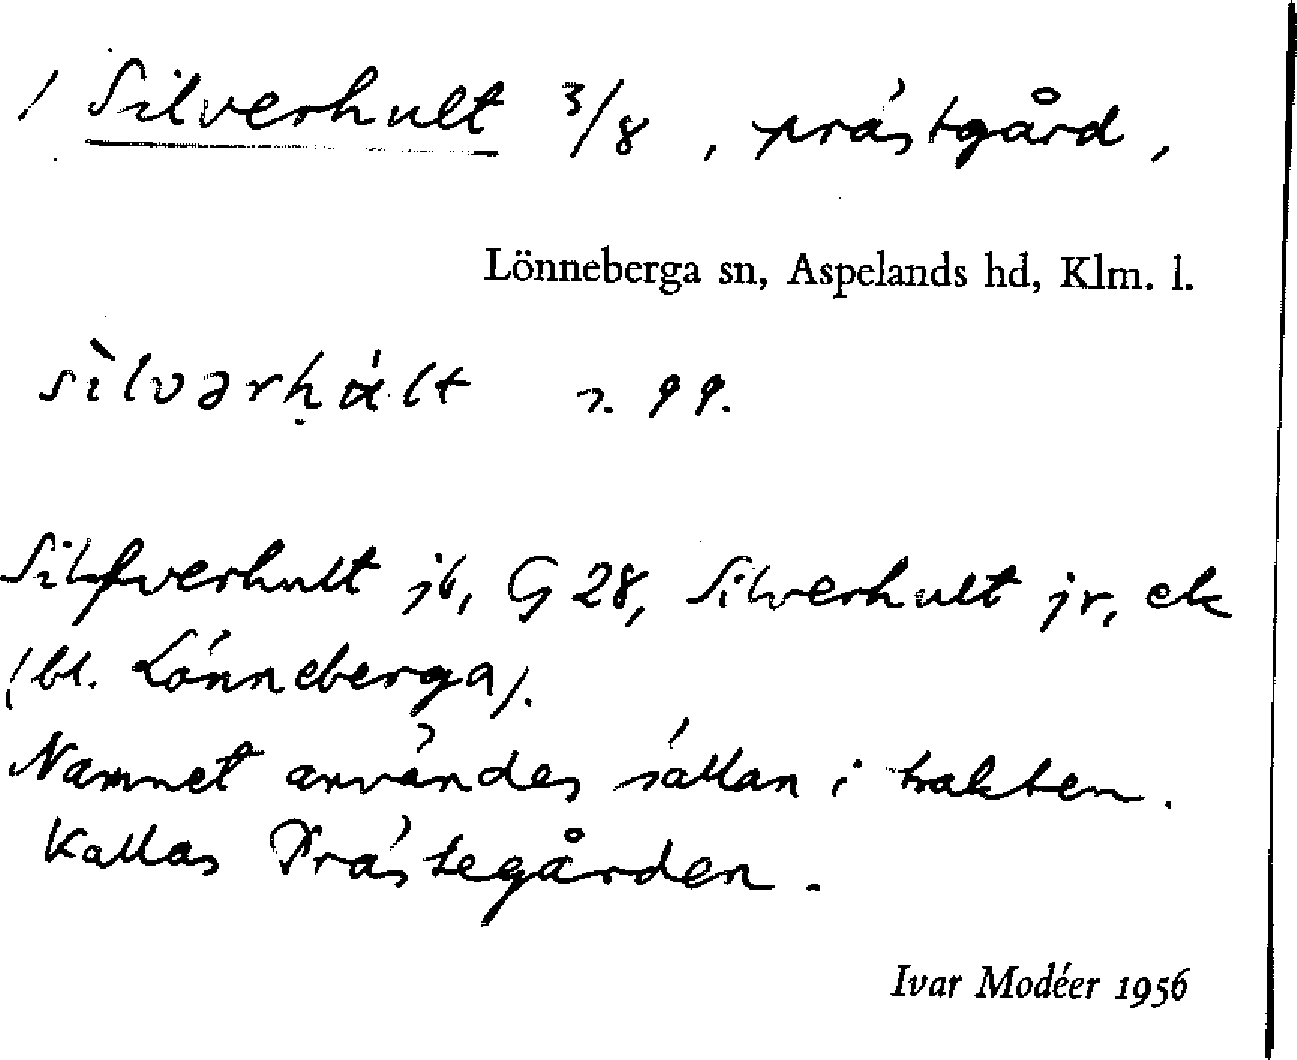 / Silverhult 3/8, prästgård,
Lönneberga sn, Aspelands hd, Klm. l.
sìlvərḥált
Silfverhult jb, G 28, Silverhult jr, ek
(bl. Lönneberga).
Namnet användes sällan i trakten.
Kallas Prästegården.
Ivar Modéer 1956